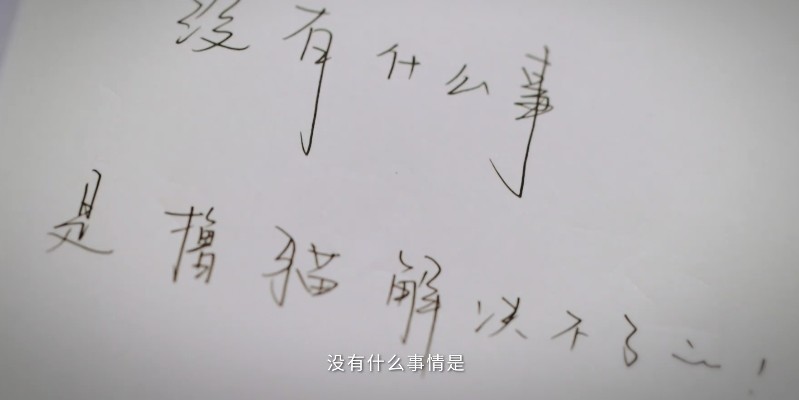 没有什么事
是撸猫解决不了
没有什么事情是